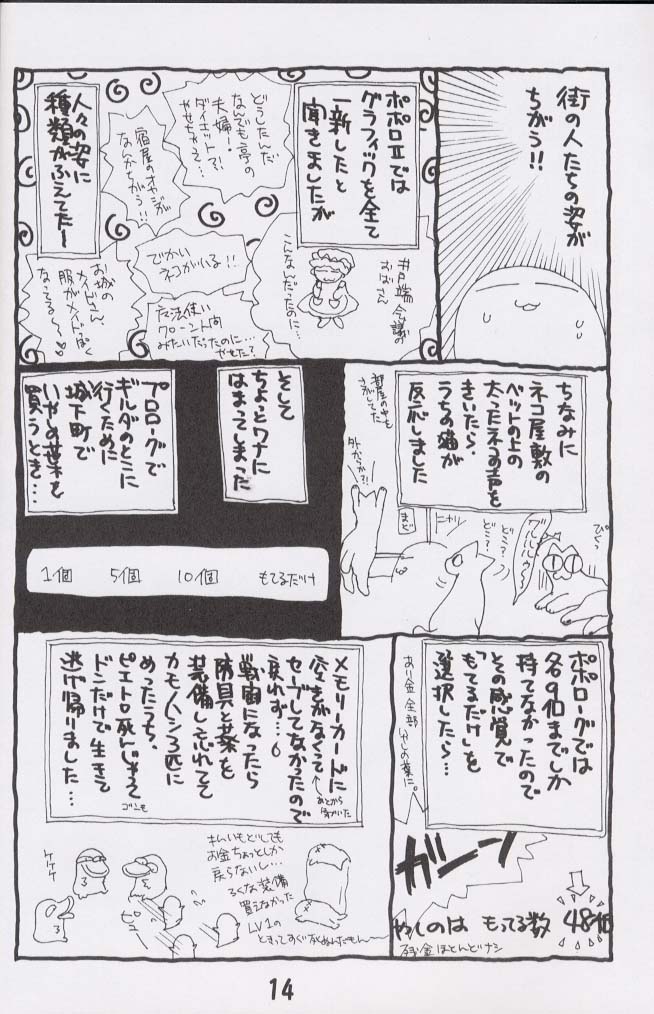 街の人たちの姿が
ちがう!!
ポポロⅡでは
グラフィックを全て
一新したと
聞きましたが
井戸端会議の
おばさん
こんなんだったのに…
どうしたんだ
なんでも亭の
夫婦!
ダイエット?!
やせちゃって…
宿屋のオヤジが
なんかちがう!!
でかい
ネコがいる!!
魔法使い
みたいだったのに…
やせた?
人々の姿に
種類がふえてたー
お城の
メイドさん、
服がメイドっぽく
なってる〜
ちなみに
ネコ屋敷の
ベットの上の
太ったネコの声を
きいたら、
うちの猫が
反応しました
部屋の中も
さがしてた
外かっか?!
まど
ニャッ
どこ?
どこ?
ぴくっ
そして
ちょっとワナに
はまってしまった
プロローグで
ギルダのとこに
行くために
城下町で
いやしの葉を
買うとき…
1個 5個 10個 もてるだけ
ポポローグでは
各9個までしか
持てなかったので
その感覚で
「もてるだけ」を
選択したら…
あり金全部いやしの葉に。
ガーン
やしのは もってる数 48個
残金ほとんどナシ
メモリーカードに
空きがなくて
セーブしてなかったので
戻れず…
あとから
気がいた
戦闘になったら
防具と葉を
装備し忘れてて
カモノハシ3匹に
めったうち、
ピエトロ死んじゃって
ゴンも
ドンだけで生きて
逃げ帰りました…
ケケケ
ピュー
お金ちょっとしか
戻らないし…
ろくな装備
買えなかった
LV1の